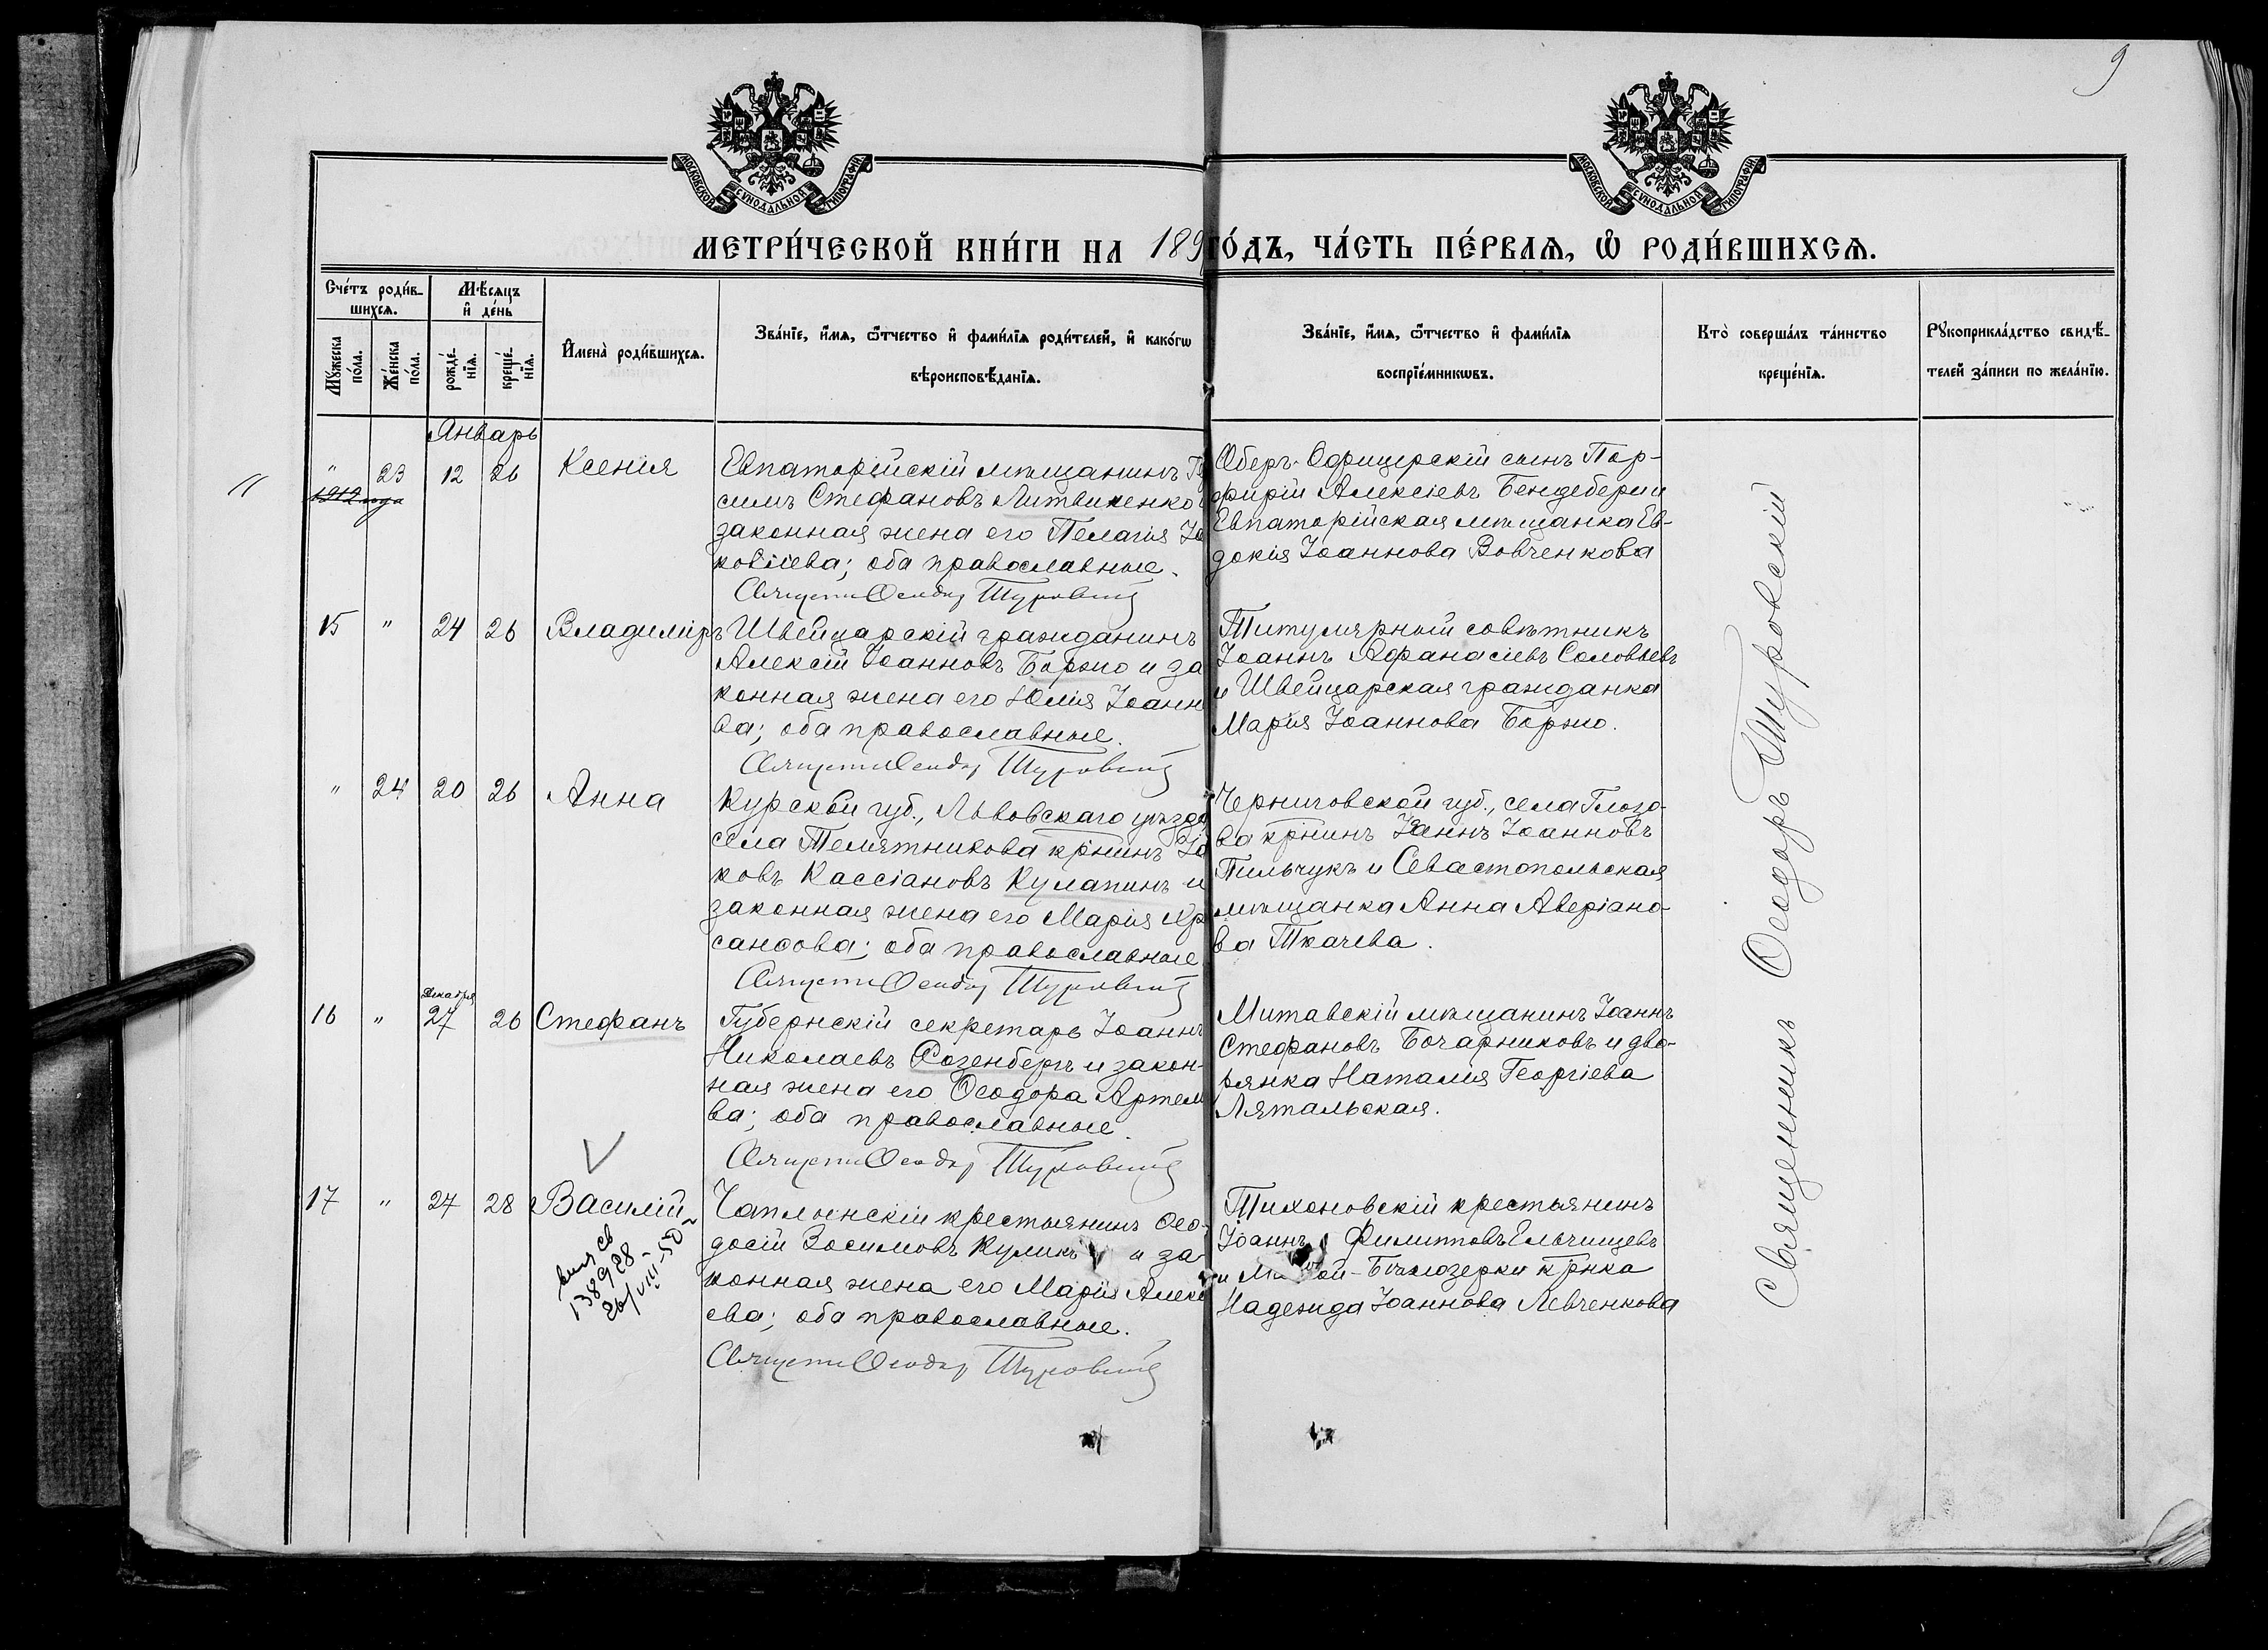 9
МОСКОВСКОЙ СѴНОДАЛЬНОЙ ТИПОГРАФІИ
МОСКОВСКОЙ СѴНОДАЛЬНОЙ ТИПОГРАФІИ
МЕТРИ́ЧЕСКОЙ КНИ́ГИ НА 189 ГО́ДЪ, ЧА́СТЬ ПЕ́РВАѦ, Ѽ РОДИ́ВШИХСѦ.
Сче́тъ роди́в-
шихсѧ.
Мꙋ́жеска по́ла.
Же́нска по́ла.
Мѣ́сѧцъ и҆ де́нь
рожде́-нїѧ.
креще́-нїѧ.
И҆мена̀ роди́вшихсѧ.
Зва́нїе, и҆́мѧ, ѻ҆́тчество и҆ фами́лїѧ роди́телей, и҆ како́гѡ
вѣроисповѣ́данїѧ.
Зва́нїе, и҆́мѧ, ѻ҆́тчество и҆ фами́лїѧ
воспрїе́мникѡвъ.
Кто̀ соверша́лъ та́инство
креще́нїѧ.
Рꙋкоприкла́дство свидѣ́-
телей за́писи по жела́нїю.
Январь
" 23 12 26 Ксенія
1912 года
Евпаторійскій мѣщанинъ Ге
симъ Стефановъ Литвиненко
законная жена его Пелагія Іа
ковліева; оба православные.
Священн Ѳеодор Туровскій
Оберъ-Офицерскій сынъ Пор-
фирій Алексіевъ Бендебери и
Евпаторійская мѣщанка Ев-
докія Іоаннова Вовченкова
15 " 24 26 Владиміръ
Швейцарскій гражданинъ
Алексій Іоанновъ Боржо и за
конная жена его Юлія Іоанн
ва; оба православные.
Священн Ѳеодор Туровскій
Титулярный совѣтникъ
Іоаннъ Афанасіевъ Соловьевъ
и Швейцарская гражданка
Марія Іоаннова Боржо.
" 24 20 26 Анна
Курской губ., Львовскаго уѣзда
села Телятникова кр-нинъ Іа
ковъ Кассіановъ Кулапинъ и
законная жена его Марія Хр
санфова; оба православные
Священн Ѳеодор Туровскій
Черниговской губ., села Глого-
ва кр-нинъ Іоаннъ Іоанновъ
Пильчукъ и Севастопольская
мѣщанка Анна Аверіано-
ва Ткачева.
Декабря
16 " 27 26 Стефанъ
Губернскій секретарь Іоаннъ
Николаевъ Розенбергъ и закон-
ная жена его Ѳеодора Артем
ва; оба православные.
Священн Ѳеодор Туровскій
Митавскій мѣщанинъ Іоаннъ
Стефановъ Бочарниковъ и дво-
рянка Наталія Георгіева
Лятальская.
17 " 27 28 Василій
св
138928
26/VIII-50
Чаплынскій крестьянинъ Ѳео-
досій Зосимовъ Куликъ и за-
конная жена его Марія Алекс
ева; оба православные.
Священн Ѳеодор Туровскій
Тихоновскій крестьянинъ
Іоаннъ Филипповъ Ельчищевъ
и Бѣлозерки кр-нка
Надежда Іоаннова Левченкова
Священникъ Ѳеодоръ Туровскій